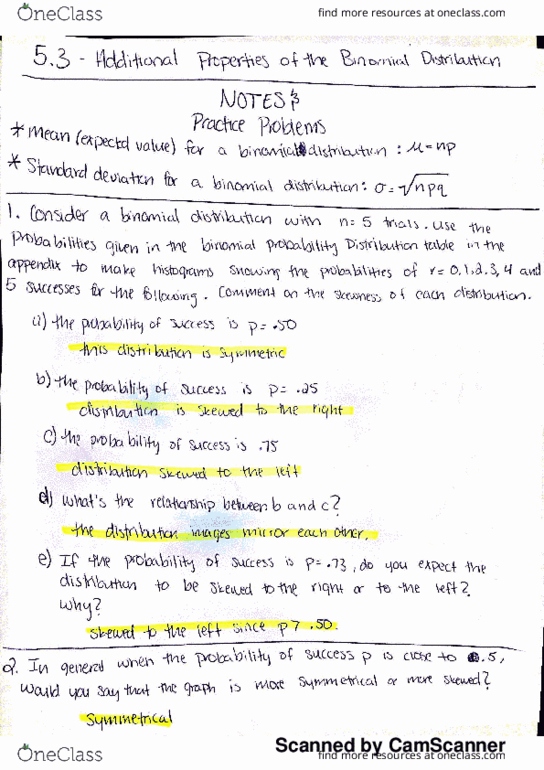 OneClass
find more resources at oneclass.com
5.3 - Additional Properties of the Binomial Distribution
NOTES &
Practice Problems
* Mean (expected value) for a binomial distribution : μ = np
* Standard deviation for a binomial distribution: σ = √npq
1. Consider a binomial distribution with n= 5 trials. Use the
Probabilities given in the binomial probability Distribution table in the
appendix to make histograms showing the probabilities of r= 0,1,2.3,4 and
5 successes for the following. Comment on the skewness of each distribution.
a) the probability of success is p= .50
this distribution is symmetric
b) the probability of success is p= .25
distribution is skewed to the right
c) the probability of success is .75
distribution skewed to the left
d) What's the relationship between b and c?
the distribution images mirror each other.
e) If the probability of success is p= .73, do you expect the
distribution to be skewed to the right or to the left?
Why?
skewed to the left since p > .50.
2. In general when the probability of success p is close to .5,
would you say that the graph is more symmetrical or more skewed?
symmetrical
Scanned by CamScanner
OneClass
find more resources at oneclass.com